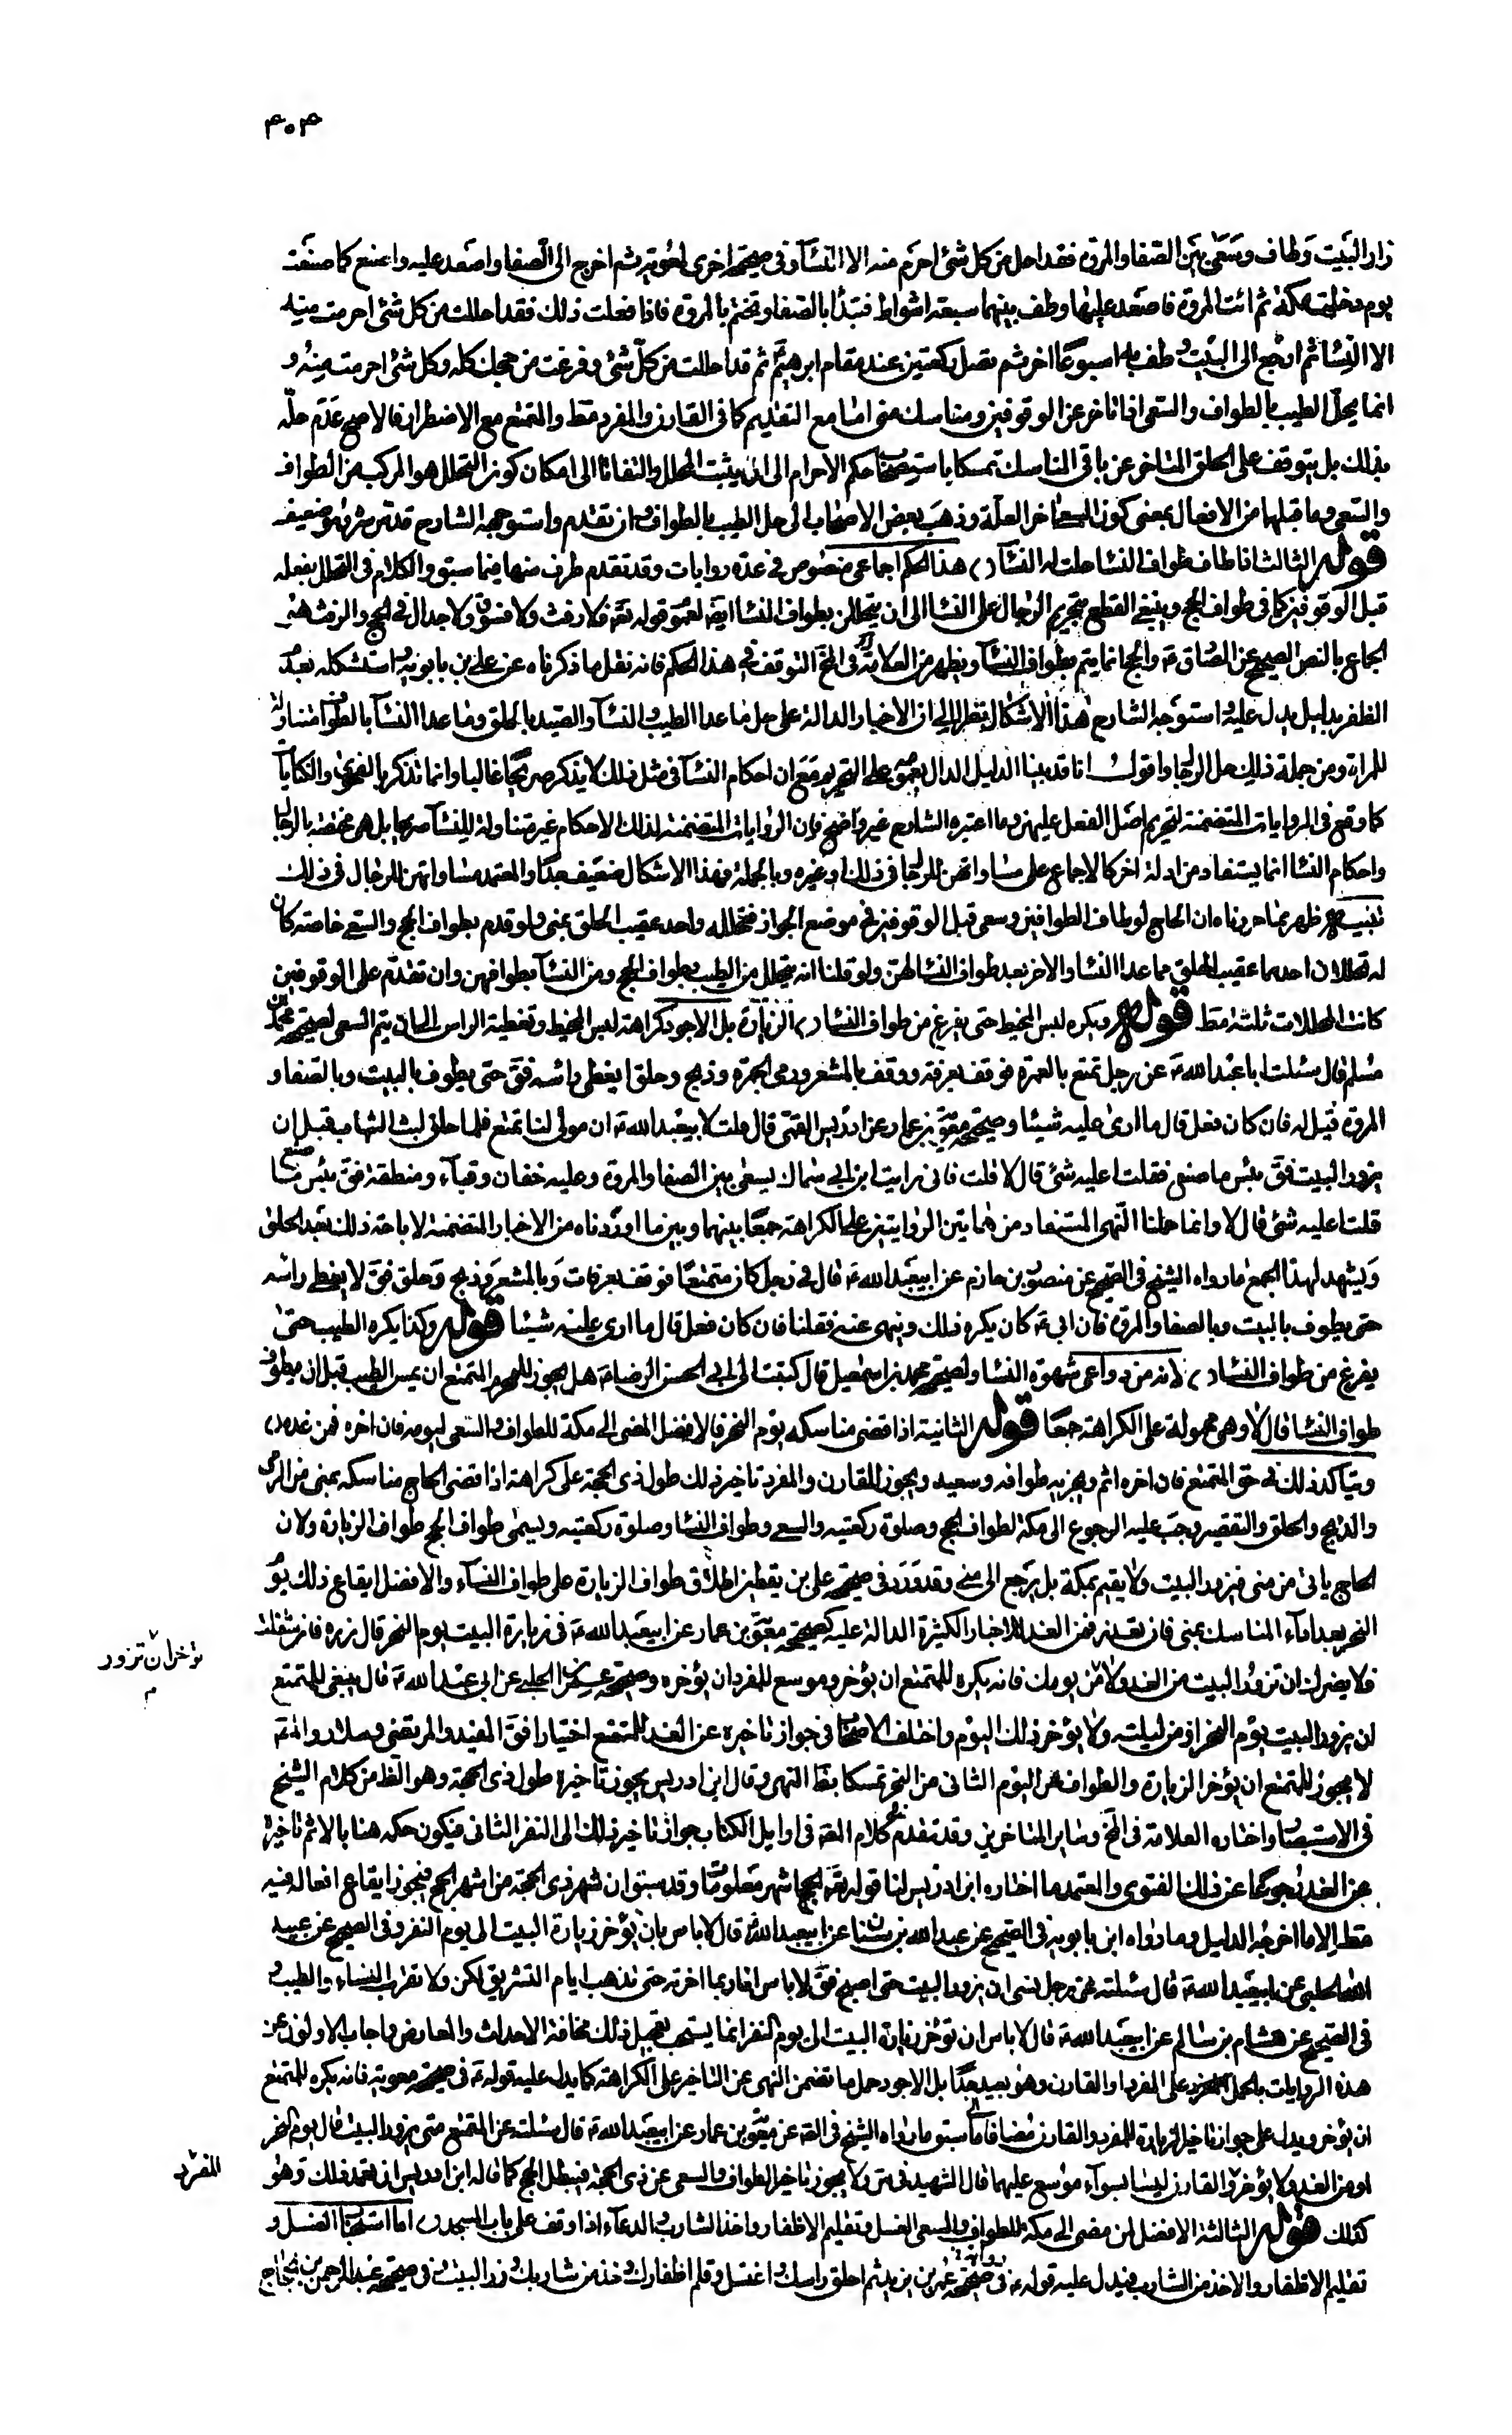 ٤٠٤
زار البيت وطاف وسعى بين الصفا والمروة فقد احل من كل شئ احرم منه الا النساء وفى صحيحة اخرى لمعوية ثم اخرج الى الصفا واصعد عليه واصنع كما صنعت
يوم دخلت مكة ثم ائت المروة فاصعد عليها وطف بينهما سبعة اشواط فتبدأ بالصفا وتختم بالمروة فاذا فعلت ذلك فقد احللت من كل شئ احرمت منه
الا النساء ثم ارجع الى البيت وطف به اسبوعا اخر ثم تصلى ركعتين عند مقام ابرهيم ثم قد احللت من كل شئ وفرغت من حجك كله وكل شئ احرمت منه و
انما يحل الطيب بالطواف والسعى اذا تاخر عن الوقوفين ومناسك منى اما مع التقديم كما فى القارن والمفرد مط والمتمتع مع الاضطرار فالاصح عدم حله
بذلك بل يتوقف على الحلق المتاخر عن باقى المناسك تمسكا باستصحاب حكم الاحرام الى ان يثبت المحلل والتفاتا الى امكان كون المحلل هو المركب من الطواف
والسعى وما قبلها من الافعال بمعنى كون السعى اخر العلة وذهب بعض الاصحاب الى حل الطيب بالطواف وان تقدم واستوجهه الشارح قدس سره وهو ضعيف
قوله الثالث اذا طاف طواف النساء حلت له النساء هذا الحكم اجماعى منصوص فى عدة روايات وقد تقدم طرف منها فيما سبق والكلام فى التحلل بفعله
قبل الوقوفين كما فى طواف الحج وينبغى القطع بتحريم الرجال على النساء الى ان يتحللن بطواف النساء ايضا لعموم قوله تعه فلا رفث ولا فسوق ولا جدال فى الحج والرفث هو
الجماع بالنص الصحيح عن الصادق ع والحج انما يتم بطواف النساء ويظهر من العلامة فى المخ التوقف فى هذا الحكم فانه نقل ما ذكرناه عن على بن بابويه واستشكله بعدم
الظفر بدليل يدل عليه واستوجه الشارح هذا الاشكال نظرا الى ان الاخبار الدالة على حل ما عدا الطيب والنساء والصيد بالحلق وما عدا النساء بالطواف متناولة
للمراة ومن جملة ذلك حل الرجال واقول انا قد بينا الدليل الدال بعمومه على التحريم مع ان احكام النساء فى مثل ذلك لا يذكر صريحا غالبا وانما تذكر بالفحوى والكنايات
كما وقع فى الروايات المتضمنة لتحريم اصل الفعل عليهن وما اعتبره الشارح غير واضح فان الروايات المتضمنة لذلك الاحكام غير متناولة للنساء صريحا بل هى مختصة بالرجال
واحكام النساء انما يستفاد من ادلة اخر كالاجماع على مساواتهن للرجال فى ذلك او غيره وبالجملة فهذا الاشكال ضعيف جدا والمعتمد مساواتهن للرجال فى ذلك
تنبيه ظهر مما حررناه ان الحاج لو طاف الطوافين وسعى قبل الوقوفين فى موضع الجواز فتحلله واحد عقيب الحلق بمنى ولو قدم بطواف الحج والسعى خاصة كان
له تحللان احدهما عقيب الحلق مما عدا النساء والاخر بعد طواف النساء لهن ولو قلنا انه يتحلل من الطيب بطواف الحج ومن النساء بطوافهن وان تقدم على الوقوفين
كانت المحللات ثلثة مط قوله ويكره لبس المخيط حتى يفرغ من طواف النساء الزيارة بل الاجود كراهة لبس المخيط وتغطية الراس الى ان يتم السعى لصحيحة محمد بن
مسلم قال سئلت ابا عبد الله ع عن رجل تمتع بالعمرة فوقف بعرفة ووقف بالمشعر ورمى الجمرة وذبح وحلق ايغطى راسه فق حتى يطوف بالبيت وبالصفا و
المروة قيل له فان كان فعل قال ما ارى عليه شيئا وصحيحة معوية بن عمار عن ادريس القمى قال قلت لابيعبد الله ع ان مولى لنا تمتع فلما حلق لبس الثياب قبل ان
يزور البيت فق بئس ما صنع فقلت اعليه شئ قال لا قلت فانى رايت ابن ابى سماك يسعى بين الصفا والمروة وعليه خفان وقباء ومنطقة فق بئس ما صنع
قلت اعليه شئ قال لا وانما حملنا النهى المستفاد من هاتين الروايتين على الكراهة جمعا بينهما وبين ما اوردناه من الاخبار المتضمنة لاباحة ذلك بعد الحلق
ويشهد لهذا الجمع ما رواه الشيخ فى الصحيح عن منصور بن حازم عن ابيعبد الله ع قال فى رجل كان متمتعا فوقف بعرفات وبالمشعر وذبح وحلق فق لا يغطى راسه
حتى يطوف بالبيت وبالصفا والمروة فان ابى ع كان يكره ذلك وينهى عنه فقلنا فان كان فعل قال ما ارى عليه شيئا قوله وكذا يكره الطيب حتى
يفرغ من طواف النساء لانه من دواعى شهوة النساء ولصحيحة محمد بن اسمعيل قال كتبت الى ابى الحسن الرضا ع هل يجوز للمحرم المتمتع ان يمس الطيب قبل ان يطوف
طواف النساء قال لا وهى محمولة على الكراهة جمعا قوله الثانية اذا قضى مناسكه يوم النحر فالافضل المضى الى مكة للطواف والسعى ليومه فان اخره فمن غده
ويتاكد ذلك فى حق المتمتع فان اخره اثم ويجزيه طوافه وسعيه ويجوز للقارن والمفرد تاخير ذلك طول ذى الحجة على كراهة اذا قضى الحاج مناسكه بمنى من الرمى
والذبح والحلق والتقصير وجب عليه الرجوع الى مكة لطواف الحج وصلوة ركعتيه والسعى وطواف النساء وصلوة ركعتيه ويسمى طواف الحج طواف الزيارة ولان
الحاج ياتى من منى فيزور البيت ولا يقيم بمكة بل يرجع الى منى وقد ورد فى صحيحة على بن يقطين اطلاق طواف الزيارة على طواف النساء والافضل ايقاع ذلك يوم
النحر بعد اداء المناسك بمنى فان تعذر فمن الغد للاخبار الكثيرة الدالة عليه كصحيحة معوية بن عمار عن ابيعبد الله ع فى زيارة البيت يوم النحر قال زره فان شغلت
فلا يضرك ان تزور البيت من الغد ولا من يومك فانه يكره للمتمتع ان يؤخر وموسع للمفرد ان يؤخره وصحيحة الحلبى عن ابى عبد الله ع قال ينبغى للمتمتع
ان يزور البيت يوم النحر او من ليلته ولا يؤخر ذلك اليوم واختلف الاصحاب فى جواز تاخيره عن الغد للمتمتع اختيارا فق المفيد والمرتضى وسلار وانه
لا يجوز للمتمتع ان يؤخر الزيارة والطواف عن اليوم الثانى من النحر تمسكا بظاهر النهى وقال ابن ادريس يجوز تاخيره طول ذى الحجة وهو الظ من كلام الشيخ
فى الاستبصار واختاره العلامة فى المخ وسائر المتاخرين وقد تقدم فى كلام المصه فى اوايل الكتاب جواز تاخير ذلك الى النفر الثانى فيكون حكمه هنا بالاثم تاخيره
عن الغد رجوعا عن ذلك الفتوى والمعتمد ما اختاره ابن ادريس لنا قوله تعه الحج اشهر معلومات وقد سبق ان شهر ذى الحجة من اشهر الحج فيجوز ايقاع افعاله فيه
مط الا ما اخرجه الدليل وما رواه ابن بابويه فى الصحيح عن عبد الله بن سنان عن ابيعبد الله ع قال لا باس بان يؤخر زيارة البيت الى يوم النفر وفى الصحيح عن عبيد
الله الحلبى عن ابيعبد الله ع قال سئلته عن رجل نسى ان يزور البيت حتى اصبح فق لا باس انا ربما اخرته حتى تذهب ايام التشريق لكن ولا تقرب النساء والطيب و
فى الصحيح عن هشام بن سالم عن ابيعبد الله ع قال لا باس ان تؤخر زيارة البيت الى يوم النفر انما يستحب تعجيل ذلك مخافة الاحداث والمعاريض واجاب الاولون عن
هذه الروايات بالحمل على المفرد والقارن وهو بعيد جدا بل الاجود حمل ما تضمن النهى عن التاخير على الكراهة كما يدل عليه قوله ع فى صحيحة معوية فانه يكره للمتمتع
ان يؤخر ويدل على جواز تاخير الزيارة للمفرد والقارن مضافا الى ما سبق ما رواه الشيخ فى الصه عن معوية بن عمار عن ابيعبد الله ع قال سئلته عن المتمتع متى يزور البيت قال يوم النحر
او من الغد ولا يؤخر والقارن ليسا بسواء موسع عليهما قال الشهيد فى س ولا يجوز تاخير الطواف والسعى عن ذى الحجة فيبطل الحج كما قاله ابن ادريس ان تعمد ذلك وهو
كذلك قوله الثالثة الافضل لمن مضى الى مكة للطواف والسعى الغسل وتقليم الاظفار واخذ الشارب والدعاء اذا وقف على باب المسجد اما استحباب الغسل و
تقليم الاظفار والاخذ من الشارب فيدل عليه قوله ع فى صحيحة رواية عمر بن يزيد ثم احلق راسك واغتسل وقلم اظفارك وخذ من شاربك وزر البيت وفى صحيحة عبد الرحمن بن الحجاج
تؤخر ان تزور
م
المفرد